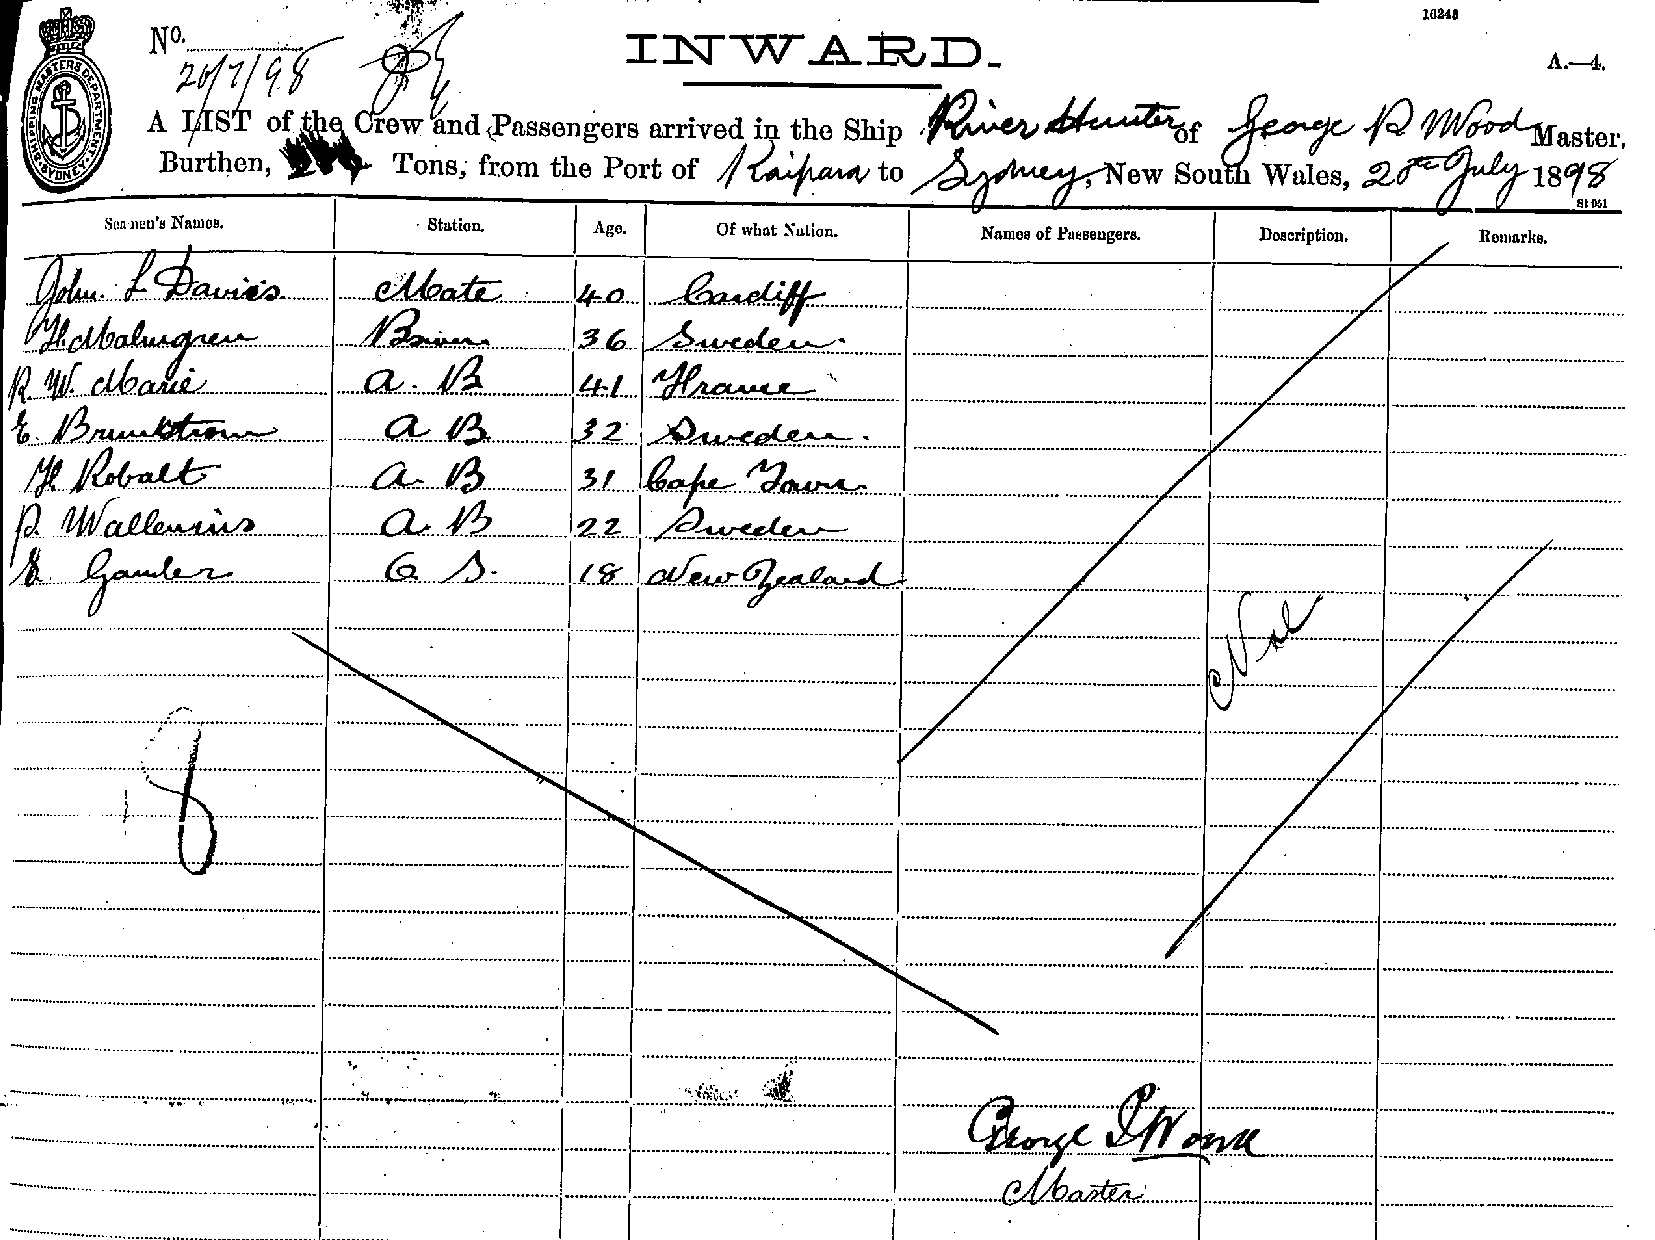 10248
No.
20/7/98
INWARD.
A.—4.
SHIPPING MASTERS DEPARTMENT SYDNEY
A LIST of the Crew and Passengers arrived in the Ship River Hunter of George P Wood Master,
Burthen, Tons, from the Port of Kaipara to Sydney, New South Wales, 20th July 1898
Seamen's Names. Station. Age. Of what Nation. Names of Passengers. Description. Remarks.
John L Davies Mate 40 Cardiff
H Malmgren 36 Sweden
R W. Marie A. B 41 France
E. Brunkstrom A B 32 Sweden.
H Robalt A. B 31 Cape Town.
P. Wallenius A. B 22 Sweden
Gander O S. 18 New Zealand
Nil
8
George P Wood
Master